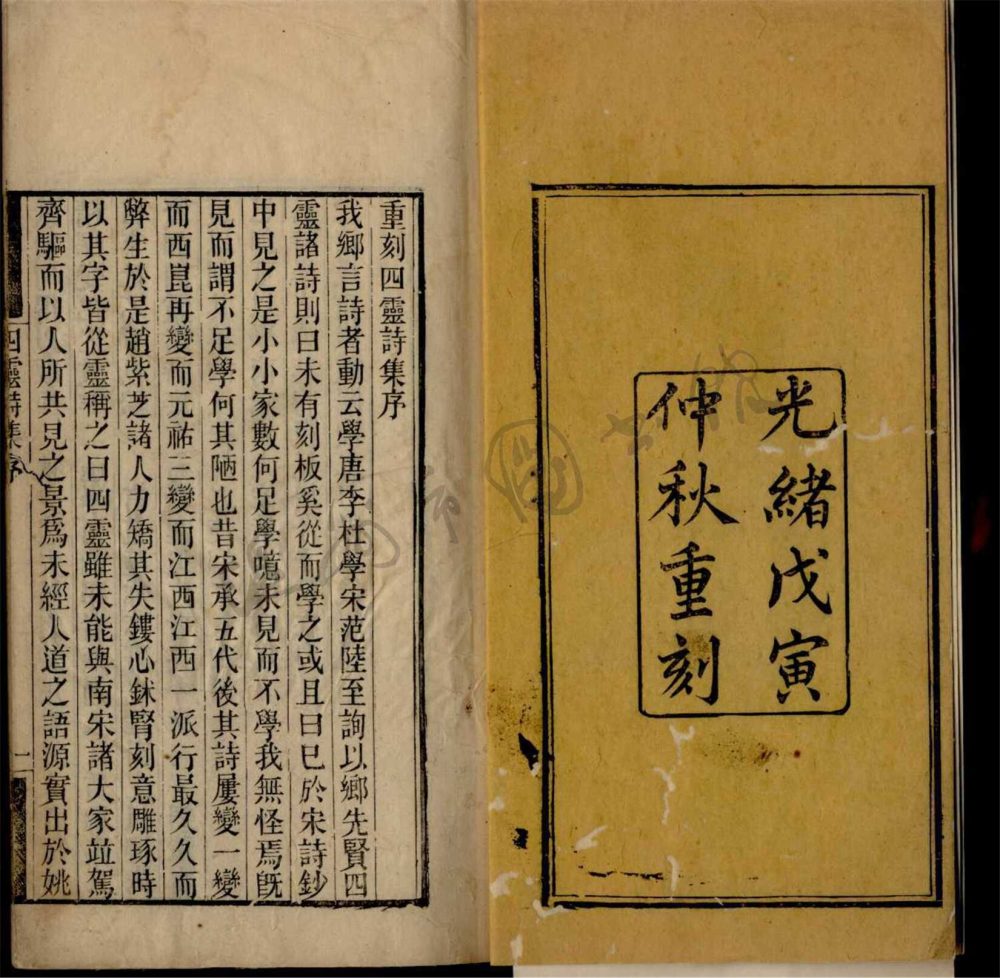 光緒戊寅
仲秋重刻
重刻四靈詩集序
我鄉言詩者動云學唐李杜學宋范陸至詢以鄉先賢四
靈諸詩則曰未有刻板奚從而學之或且曰巳於宋詩鈔
中見之是小小家數何足學噫未見而不學我無怪焉旣
見而謂不足學何其陋也昔宋承五代後其詩屢變一變
而西崑再變而元祐三變而江西江西一派行最久久而
弊生於是趙紫芝諸人力矯其失鏤心鉥腎刻意雕琢時
以其字皆從靈稱之曰四靈雖未能與南宋諸大家竝駕
齊驅而以人所共見之景爲未經人道之語源實出於姚
四靈詩集序
一